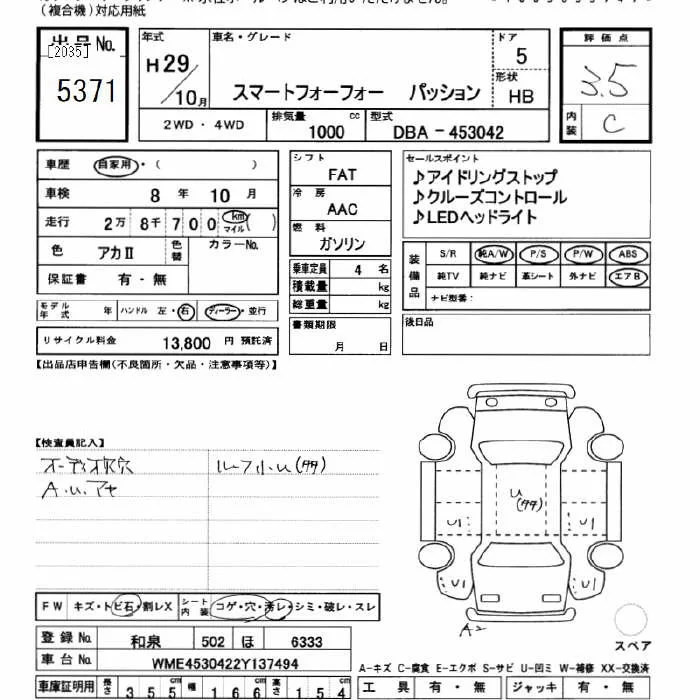 (複合機)対応用紙
出品No.
[2035]
5371
年式
H29/10月
車名・グレード
スマートフォーフォー パッション
ドア
5
形状
HB
評価点
3.5
内装
C
2WD・4WD
排気量
1000 cc
型式
DBA-453042
車歴 自家用・( )
車検 8年 10月
走行 2万 8千 7 0 0 km マイル ( )
色 アカII 色替 カラーNo.
保証書 有・無
モデル年式 年 ハンドル 左・右 ディーラー・並行
リサイクル料金 13,800 円 預託済
シフト
FAT
冷房
AAC
燃料
ガソリン
乗車定員 4 名
積載量 kg
総重量 kg
書類期限
月 日
セールスポイント
♪アイドリングストップ
♪クルーズコントロール
♪LEDヘッドライト
装備品
S/R 純A/W P/S P/W ABS
純TV 純ナビ 革シート 外ナビ エアB
ナビ型番:
後日品
【出品店申告欄(不良箇所・欠品・注意事項等)】
【検査員記入】
ルーフ小U(タタ)
U
(タタ)
U1 U1
U1 U1
A2
スペア
FW キズ・トビ石・割レX シート内装 コゲ・穴・汚レ・シミ・破レ・スレ
登録No. 和泉 502 ほ 6333
車台No. WME4530422Y137494
A-キズ C-腐食 E-エクボ S-サビ U-凹ミ W-補修 XX-交換済
車庫証明用 長さ 3 5 5 cm 幅 1 6 6 cm 高さ 1 5 4 cm
工具 有・無 ジャッキ 有・無